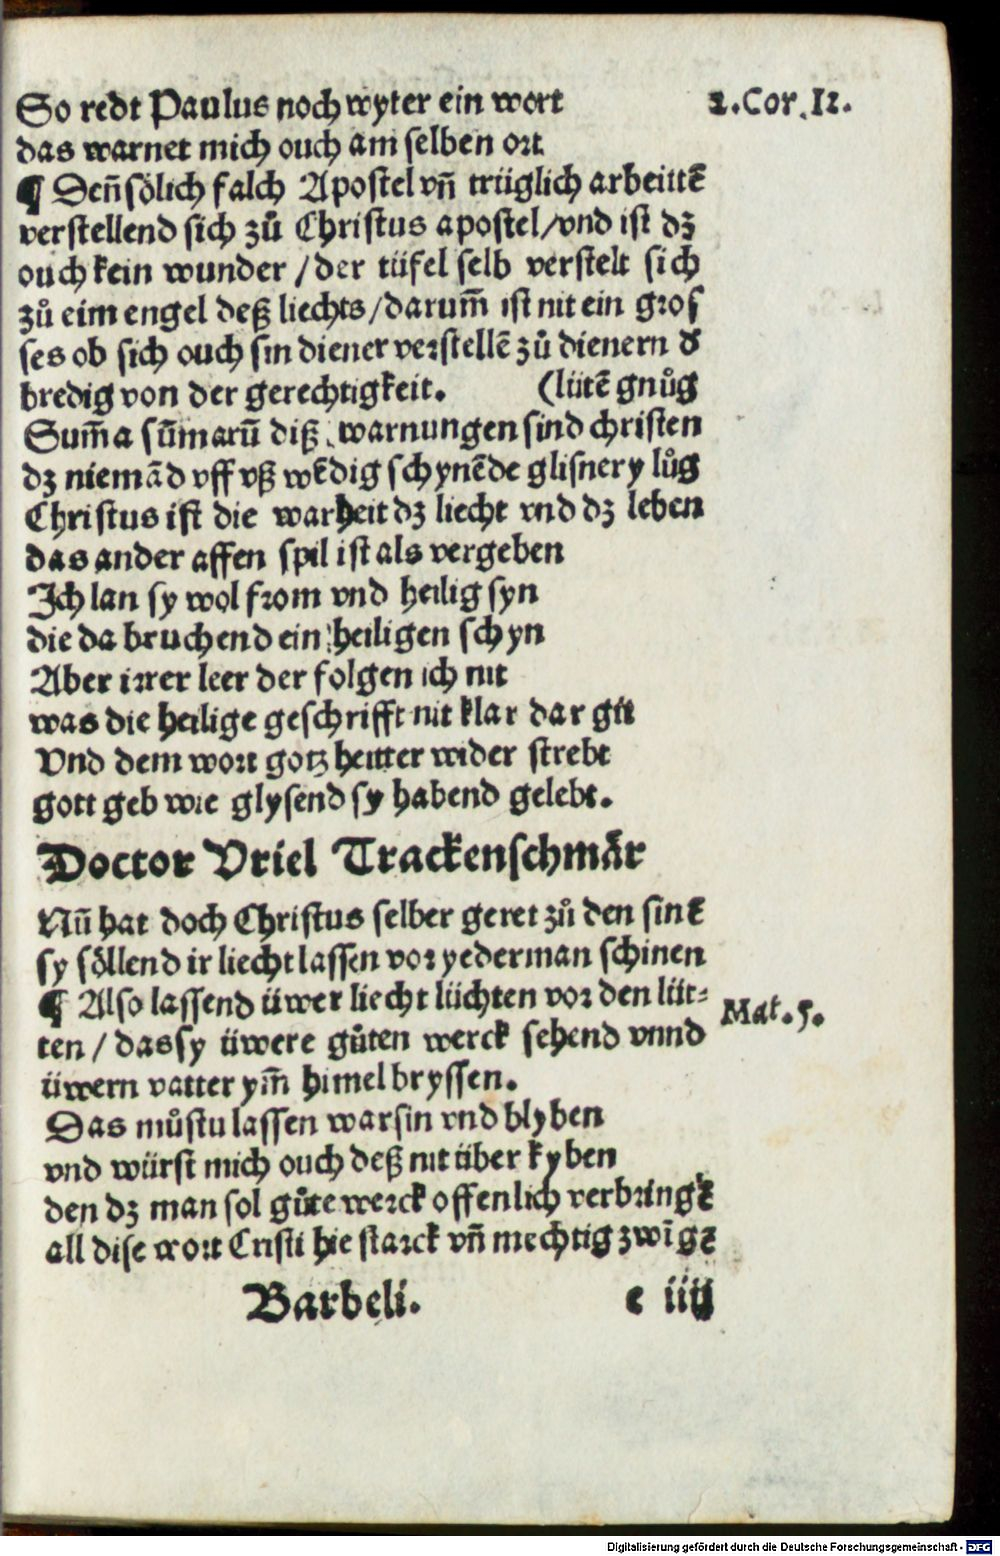 So redt Paulus noch wyter ein wort
2.Cor.11.
das warnet mich ouch am selben ort
¶ Den̄ sölich falch Apostel vn̄ trüglich arbeittē
verstellend sich zů Christus apostel/vnd ist dz
ouch kein wunder /der tüfel selb verstelt sich
zů eim engel deß liechts/darum̄ ist nit ein gros
ses ob sich ouch sin diener verstellē zů dienern d'
bredig von der gerechtigkeit. (lütē gnůg
Sum̄a sūmarū diß warnungen sind christen
dz niemād vff vßwēdig schynēde glisnery lůg
Christus ist die warheit dz liecht vnd dz leben
das ander affen spil ist als vergeben
Ich lan sy wol from vnd heilig syn
die da bruchend ein heiligen schyn
Aber irrer leer der folgen ich nit
was die heilige geschrifft nit klar dar git
Vnd dem wort gotz heitter wider strebt
gott geb wie glysend sy habend gelebt.
Doctor Vriel Trackenschmär
Nū hat doch Christus selber geret zů den sinē
sy söllend ir liecht lassen vor yederman schinen
¶ Also lassend üwer liecht lüchten vor den lüt=
Mat.5.
ten / das sy üwere gůten werck sehend vnnd
üwern vatter ym̄ himel bryssen.
Das můstu lassen war sin vnd blyben
vnd würst mich ouch deß nit über kyben
den dz man sol gůte werck offenlich verbringē
all dise wort Cristi hie starck vn̄ mechtig zwīgē
Barbeli. e iiij
Digitalisierung gefördert durch die Deutsche Forschungsgemeinschaft - DFG